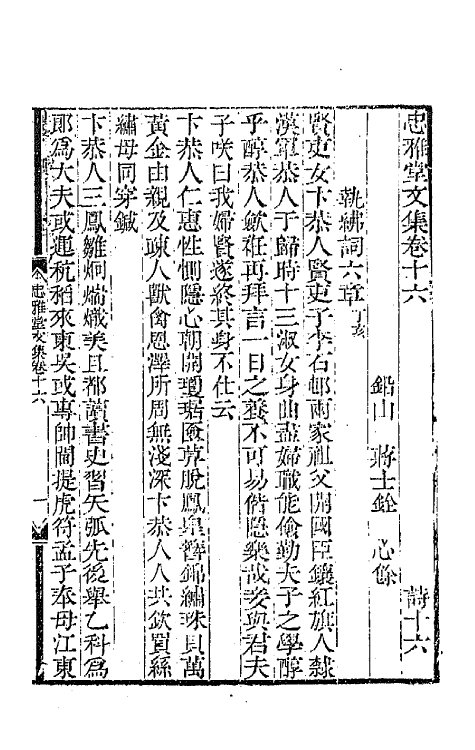 忠雅堂文集卷十六　　詩十六
鉛山　蔣士銓　心餘
執紼詞六章丁亥
賢吏女卞恭人賢吏子李石邨兩家祖父開國臣鑲紅旗人隸
漢軍恭人于歸時十三淑女身曲盡婦職能儉勤夫子之學醇
乎醇恭人斂衽再拜言一日之養不可易偕隱樂哉妾與君夫
子咲曰我婦賢遂終其身不仕云
卞恭人仁惠性惻隱心朝開瓊琚匳暮脫鳳皇簪錦繡珠貝萬
黃金由親及疎人獸禽恩澤所周無淺深卞恭人人共欽買絲
繡母同穿鍼
卞恭人三鳳雛炯煓熾美且都讀書史習矢弧先後舉乙科為
郎為大夫或運秔稻來東吳或專帥閫提虎符孟子奉母江東
忠雅堂文集卷十六
一